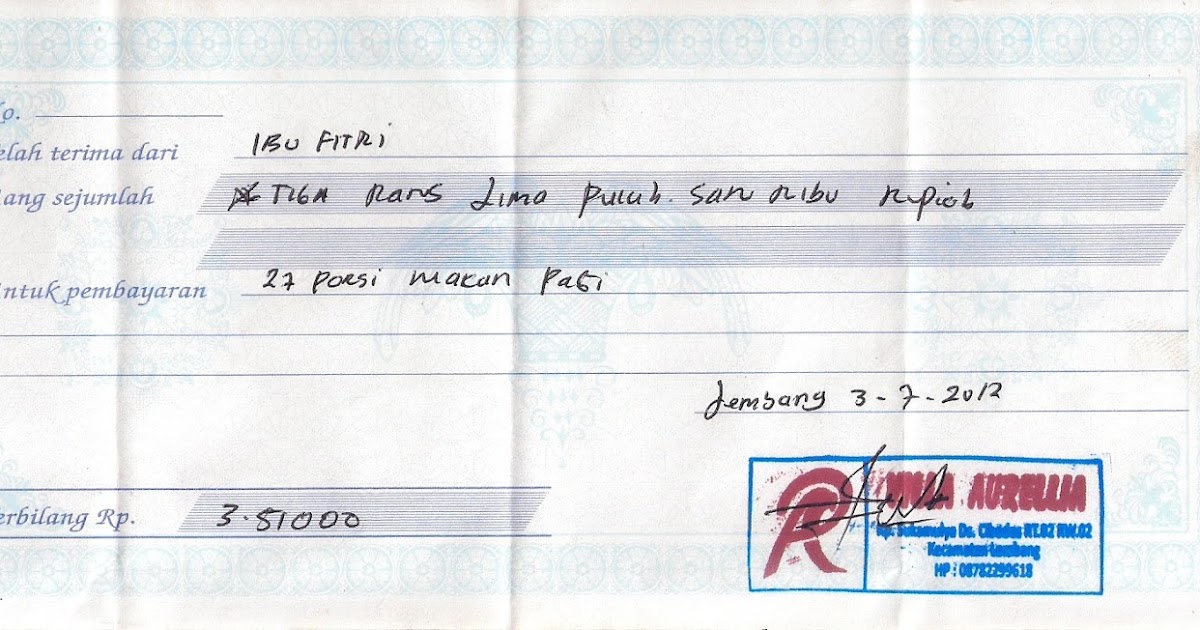 o.
elah terima dari IBU FITRI
ang sejumlah TIGA RATUS Lima Puluh SATU RIBU Rupiah
ntuk pembayaran 27 PORSI MAKAN PAGI
Lembang 3-7-2012
erbilang Rp. 3.51000
AURELLIA
Kp. Sukamulya Ds. Cibodas RT.02 RW.02
Kecamatan Lembang
HP : 08782299618